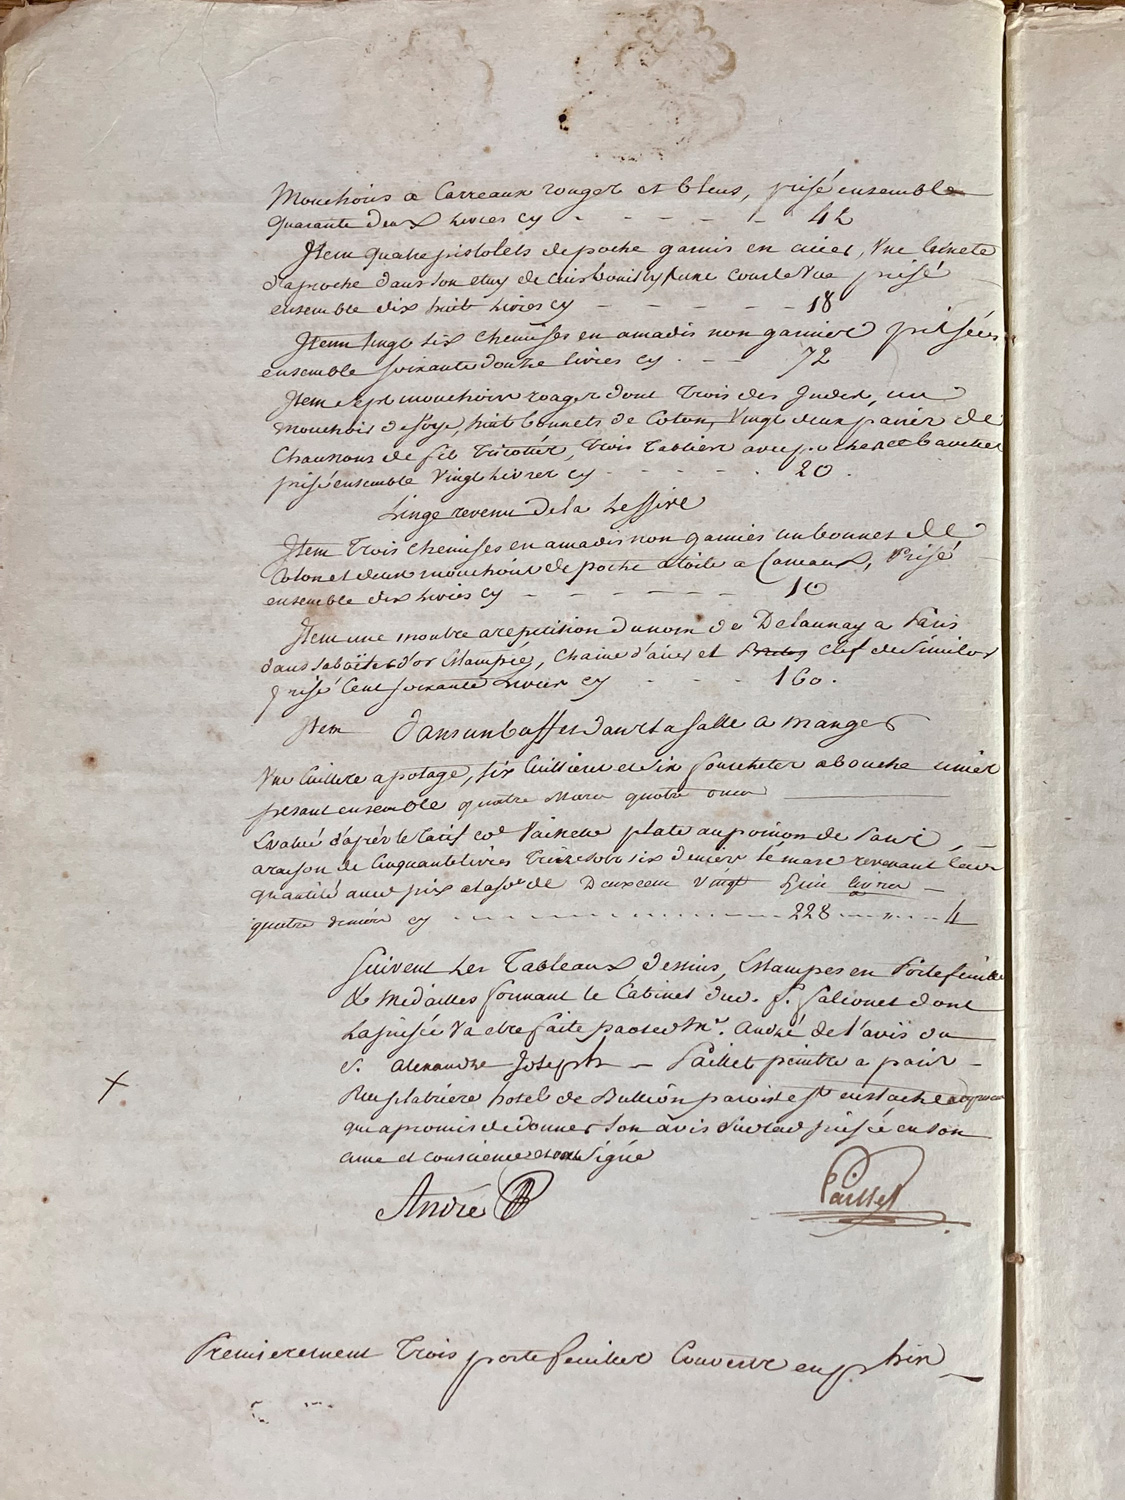 Mouchoirs a Carreaux rouges et bleus, prisé ensemble
quarante deux Livres cy - - - - - 42
Item quatre pistolets de poche garnis en acier, Une Lunete
d'aproche dans son etuy de Cuir bouilly, une courte Vue prisé
ensemble dix huit Livres cy - - - - 18
Item Vingt six chemises en amadis non garnies prisées
ensemble soixante douze livres cy - - - 72
Item Sept mouchoirs rouges dont trois des Indes, un
mouchoir de soye, huit bonnets de Coton, Vingt deux paires de
Chaussons de fil tricotés, trois tabliers avec poches et bavettes
prisé ensemble Vingt Livres cy - - - - 20.
Linge revenu de la Lessive
Item trois chemises en amadis non garnies un bonnet de
Coton et deux mouchoirs de poche a toile a Carreaux, Prisé
ensemble dix Livres cy - - - - - 10
Item une montre a repetition du nom de Delaunay a Paris
dans sa boëte d'or Estampée, Chaine d'acier et clef de Similor
prisé Cent soixante Livres cy - - - - 160.
Item Dans un buffet dans la salle a manger
Une Cuillere a potage, six Cuillieres et six fourchettes a bouche unies
pesant ensemble quatre Marcs quatre onces
Evalué d'après le tarif co.e Vaisselle plate au poinçon de Paris,
a raison de Cinquante livres treize sols six deniers le marc revenant lad.
quantité aud. prix a la so.e de Deux cens Vingt huit livres
quatre deniers cy - - - - - 228 - - " - - 4
Suivent Les Tableaux, dessins, Estampes en Portefeuille
& Medailles formant le Cabinet dud. S. Palionet dont
La prisée Va etre faite par led. M.r André de l'avis du
S. Alexandre Joseph - Paillet peintre a paris -
Rue platriere hotel de Bullion paroisse S.t eustache
qui a promis de donner Son avis Sur lad. prisée en son
ame et conscience et ont Signé
André Paillet
Premierement Trois portefeuilles Couverts en